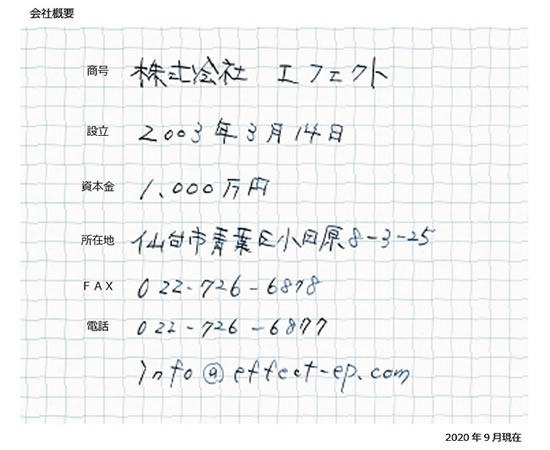 会社概要
商号 株式会社 エフェクト
設立 2003年3月14日
資本金 1,000万円
所在地 仙台市青葉区小田原8-3-25
FAX 022-726-6878
電話 022-726-6877
info@effect-ep.com
2020年9月現在